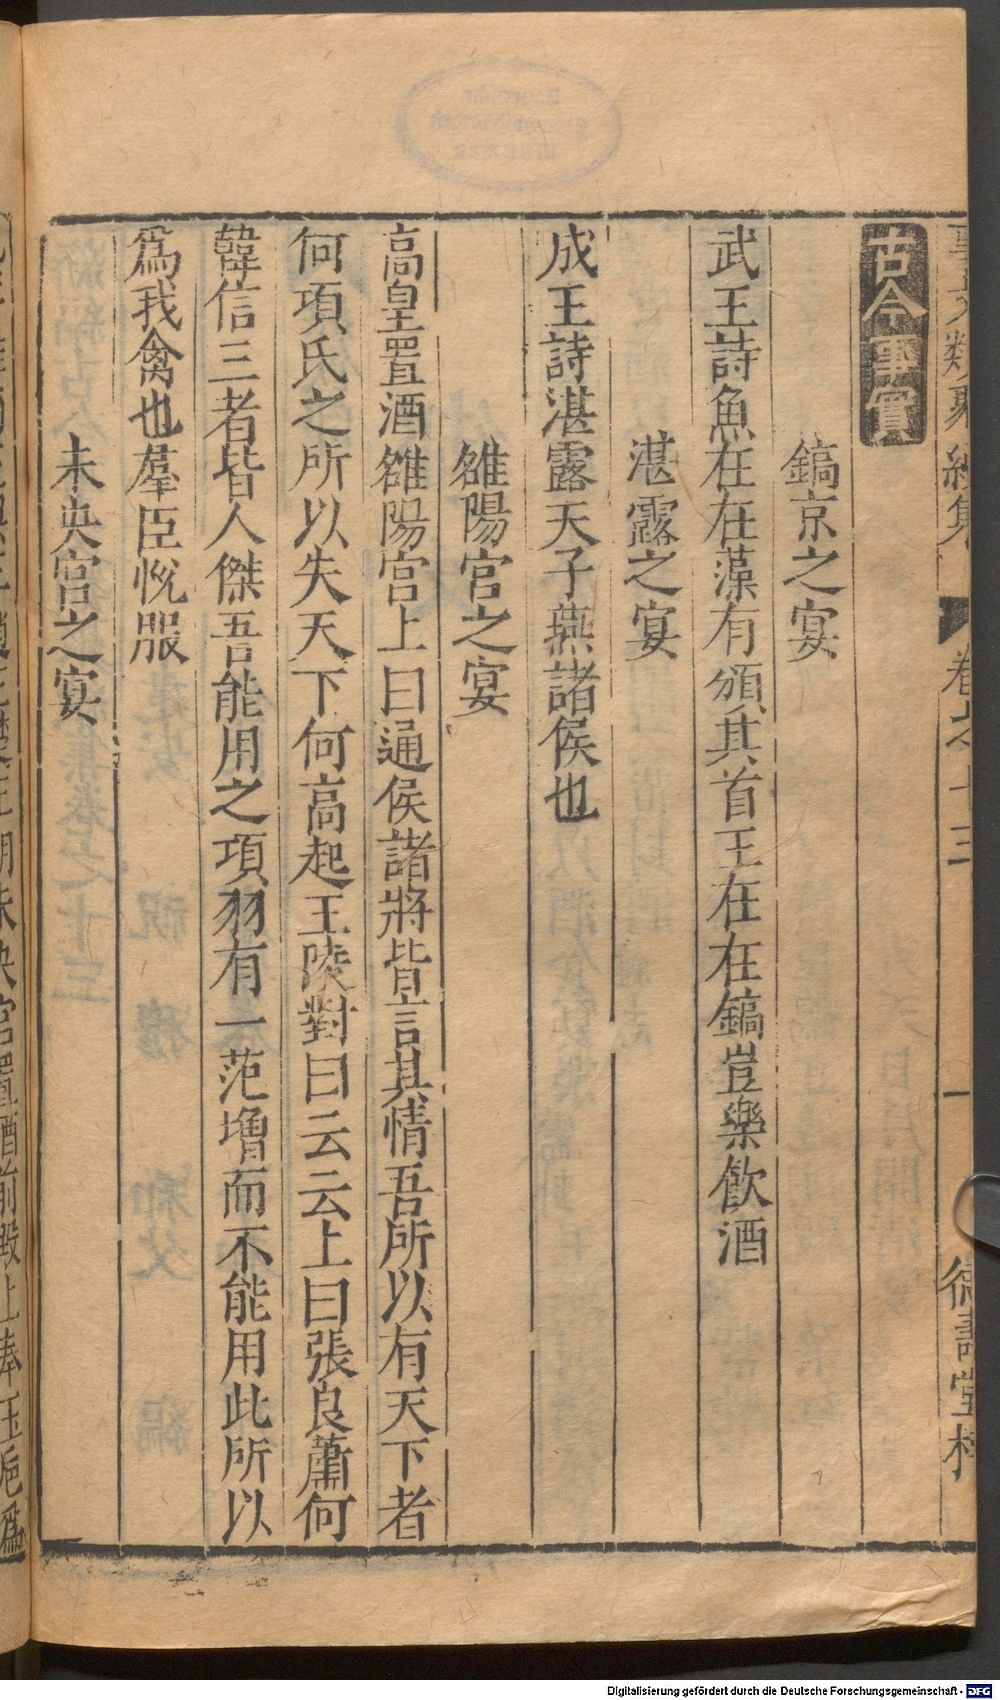 事文類聚續集 卷之十三 一 德壽堂梓
古今事實
鎬京之宴
武王詩魚在在藻有頒其首王在在鎬豈樂飲酒
湛露之宴
成王詩湛露天子燕諸侯也
雒陽宮之宴
高皇置酒雒陽宮上曰通侯諸將皆言其情吾所以有天下者
何項氏之所以失天下何高起王陵對曰云云上曰張良蕭何
韓信三者皆人傑吾能用之項羽有一范增而不能用此所以
爲我禽也羣臣悅服
未央宮之宴
未央宮置酒前殿上奉玉巵爲
Digitalisierung gefördert durch die Deutsche Forschungsgemeinschaft - DFG